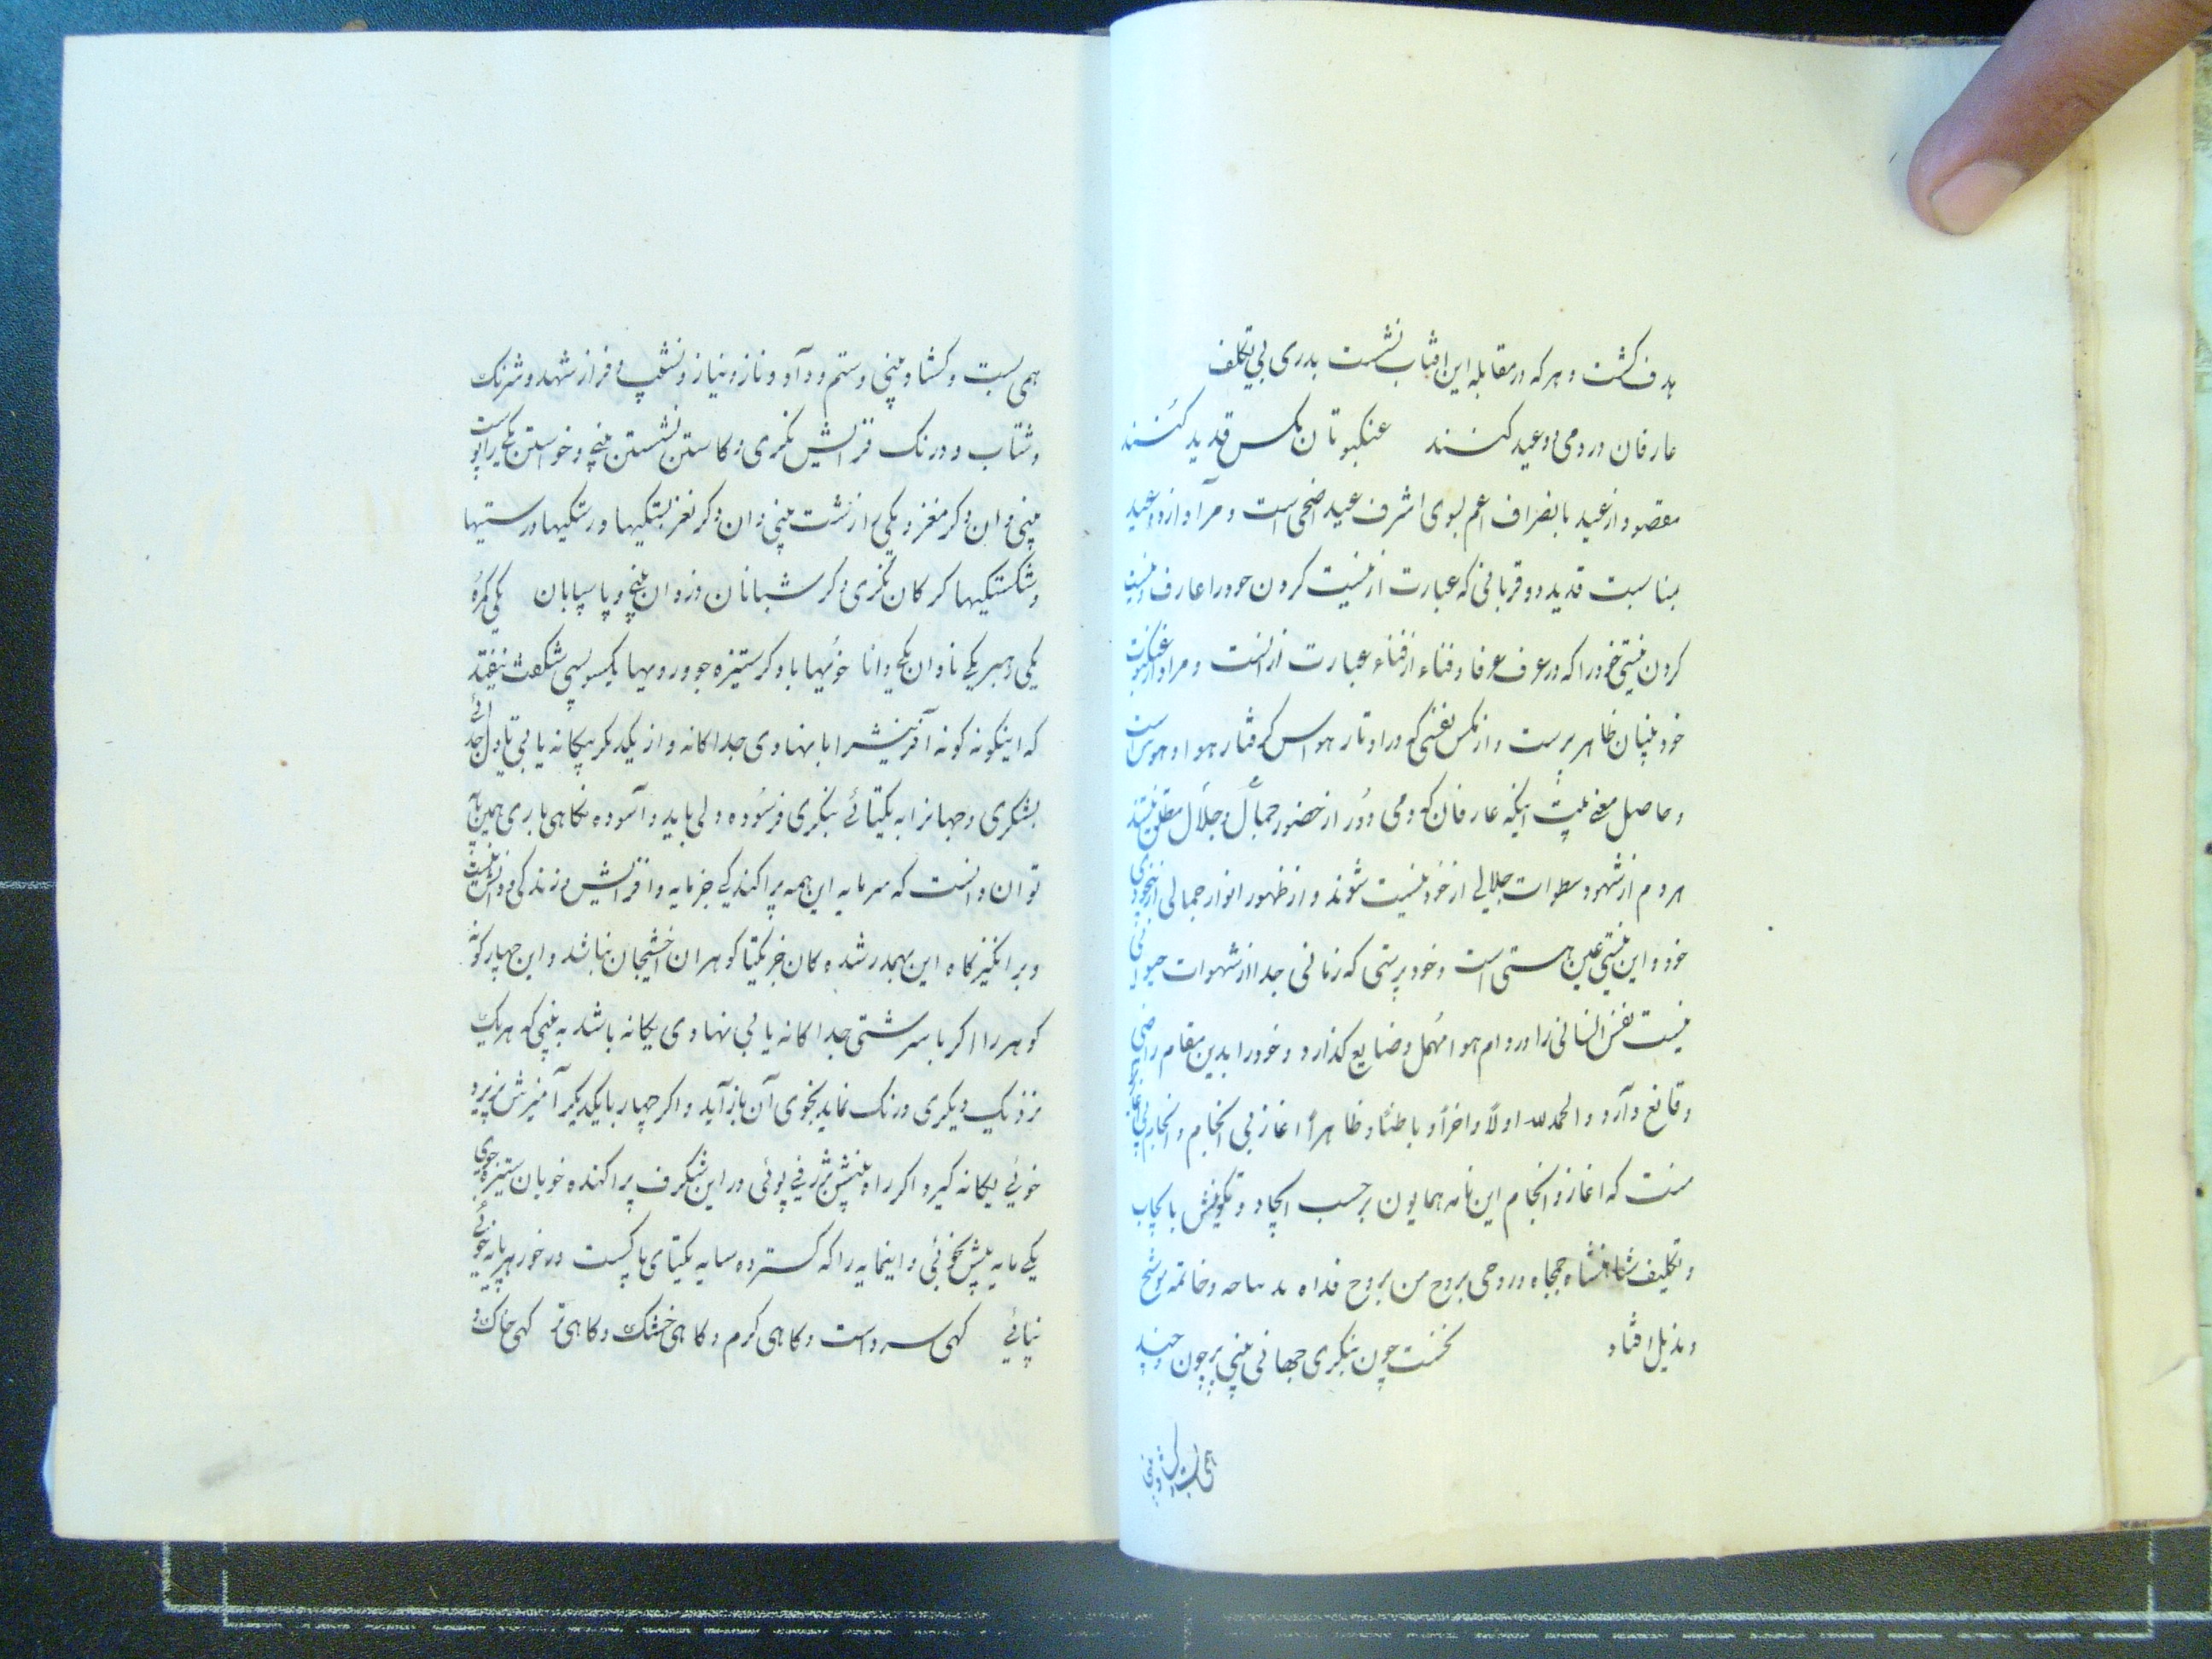 هدف کشت و هر که در مقابله این افتاب نشست بدری بی تکلف
عارفان در دمی دو عید کنند عنکبوتان مکس قدید کنند
مقصود از عید بانصراف اعم بسوی اشرف عید اضحی است و مراد از دو عید
بمناسبت قدید دو قربانی که عبارت از نیست کردن خود را عارف و نیست
کردن نیستی خود را که در عرف عرفا و فناء از فناء عبارت از انست و مراد از عنکبوت
خود بینان ظاهر پرست و از مکس نفسی که در اوتار هواس کرفتار هوا و هوس است
و حاصل معنی بیت اینکه عارفان که دمی دور از حضور جمال و جلال مطلق نیستند
هر دم از شهود سطوات جلالی از خود نیست شوند و از ظهور انوار جمالی از بیخودی
خود و این نیستی عین هستی است و خود پرستی که زمانی جدا از شهوات
نیست نفس انسانی را در دام هوا مهمل و ضایع کذارد و خود را بدین مقام راضی
و قانع دارد و الحمد لله اولاً و اخراً و باطناً و ظاهراً اغاز بی انجام و انجام بی
منت که اغاز و انجام این نامه همایون بر حسب ایجاد و تکوینش بایجاب
و تکلیف شاهنشاه جمجاه و روحی بروح من بروح فداه بدیباجه و خاتمه موشح
و مذیل افتاد نخست چون بنکری جهانی بینی پر چون و چند
همی بست و کشاد بینی و ستم و داد و ناز و نیاز و نشیب و فراز شهد و شرنک
و شتاب و درنک فزایش نکری و کاستن نشستن بینی و خواستن یکی را پوست
بینی و ان دکر مغز و یکی را زشت بینی و ان دکر نغز بستکیها و رستکیها درستیها
و شکستکیها کرکان نکری و کر شبانان دزدان بینی و پاسبانان یکی کمره
یکی رهبر یکی نادان یکی دانا خویها با دکر ستیزه جو و رویها بیکسو بسی شکفت نیفتد
که اینکونه کونه آفرینش را با نهادی جداکانه و از یکدیکر بیکانه یابی تا دل
بشکری و جهانرا به یکتائی بنکری فرسوده دلی باید و آسوده نکاهی باری همین
توان دانست که سرمایه این همه پراکندکی جز مایه و افزایش و زندکی و دانش نیست
و برانکیزکاه این بهمدر شده کان جز یکتا کوهران اخشیجان نباشد و این چهار کونه
کوهر را اکر با سرشتی جداکانه یا بی نهادی یکانه باشد به بینی که هر یک
نزدیک دیکری درنک نماید بخوی آن باز آید و اکر چهار با یکدیکر آمیزش پذیرد
خوئی یکانه کیرد اکر راه بینش ژرفی پوئی در این شکرف پراکنده خویان ستیزه جوی
یکی مایه بیش نجوئی و اینمایه را که کسترده سایه یکتای پاکست در خور هر پایه
نپائی کهی سرد است و کاهی کرم و کاهی خشک و کاهی تر کهی خاک و